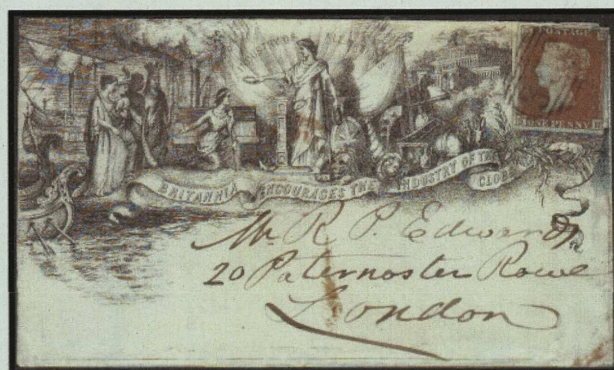 POSTAGE
ONE PENNY
BRITANNIA ENCOURAGES THE INDUSTRY OF THE GLOBE
Mr R P. Edwards
20 Paternoster Rowe
London